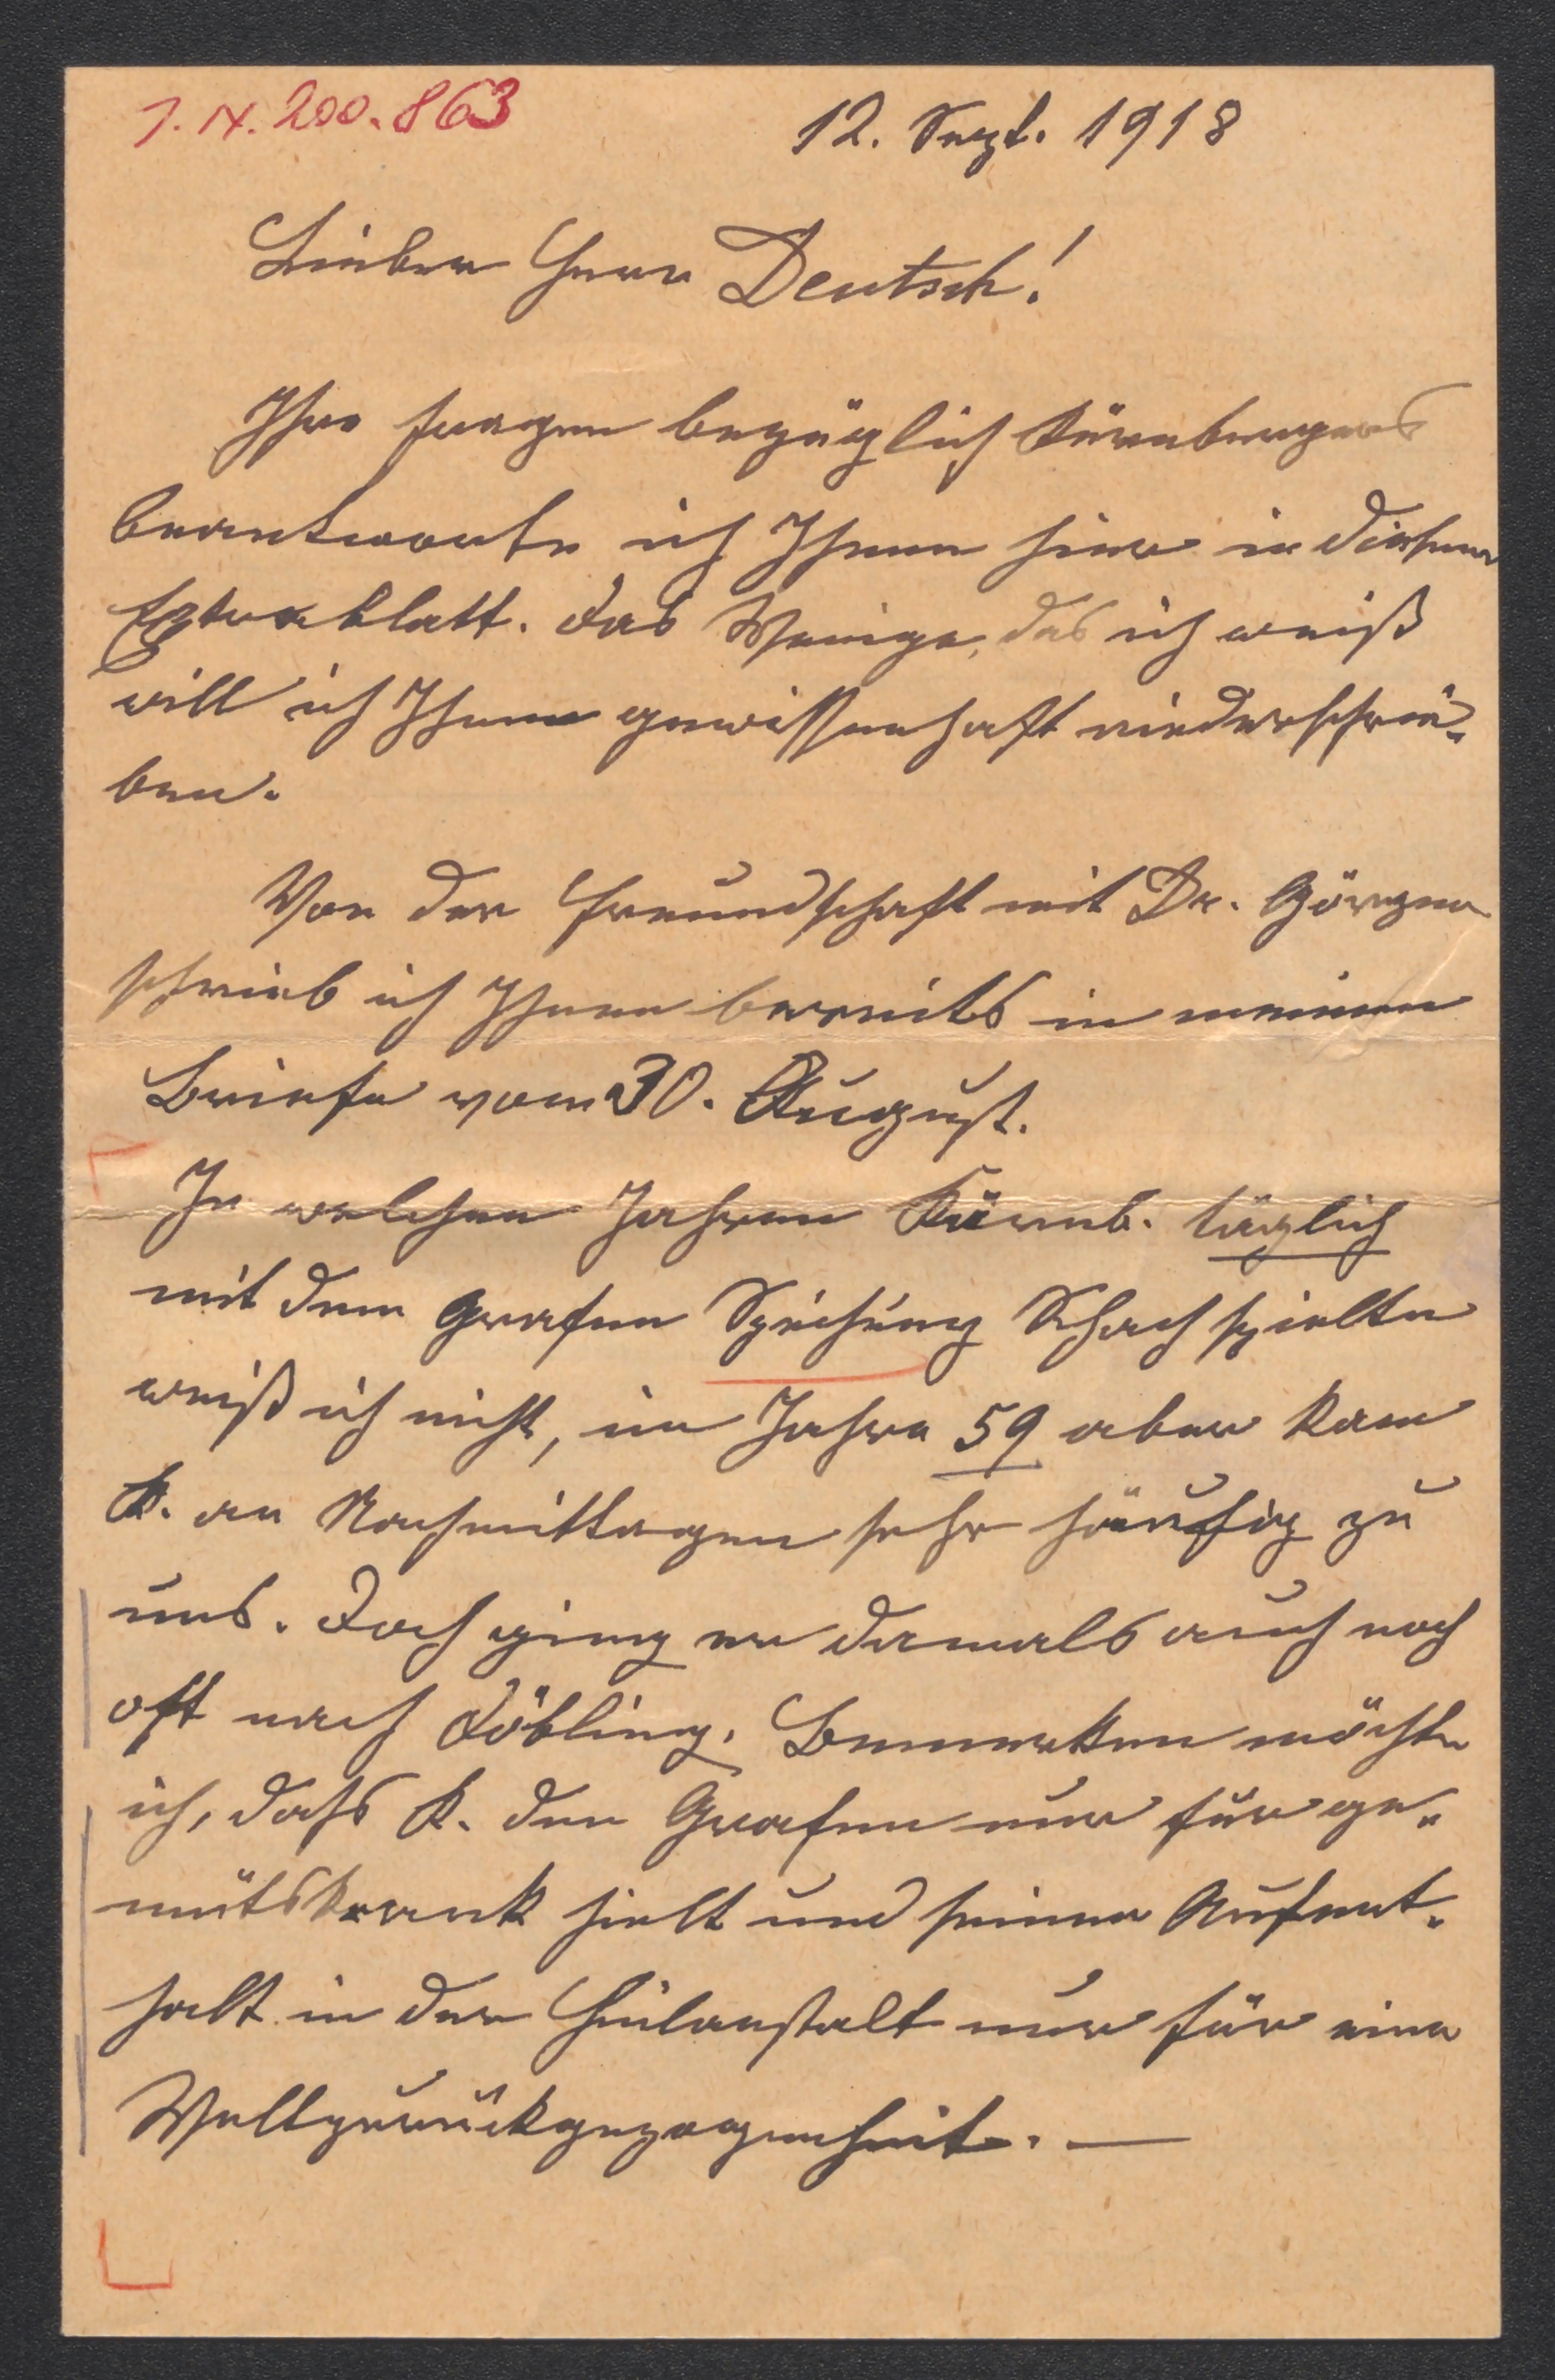 I.N. 200.863
12. Sept. 1918
Lieber Herr Deutsch!
Ihre Fragen bezüglich Kürnbergers
beantworte ich Ihnen hier in diesem
Extrablatt. Das Wenige, das ich weiß
will ich Ihnen gewissenhaft niederschrei-
ben.
Von der Freundschaft mit Dr. Görgen
schrieb ich Ihnen bereits in meinem
Briefe vom 30. August.
In welchen Jahren Kürnb. täglich
mit dem Grafen Széchény Schach spielte
weiß ich nicht, im Jahre 59 aber kam
K. an Nachmittagen sehr häufig zu
uns. Doch ging er damals auch noch
oft nach Döbling. Bemerken möchte
ich, dass K. den Grafen nur für ge-
mütskrank hielt und seinen Aufent-
halt in der Heilanstalt nur für eine
Weltzurückgezogenheit. —